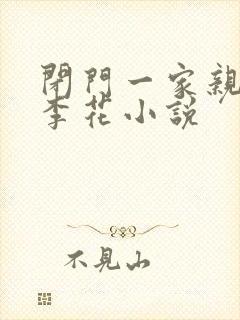 閉門一家親
李花小説
不見山